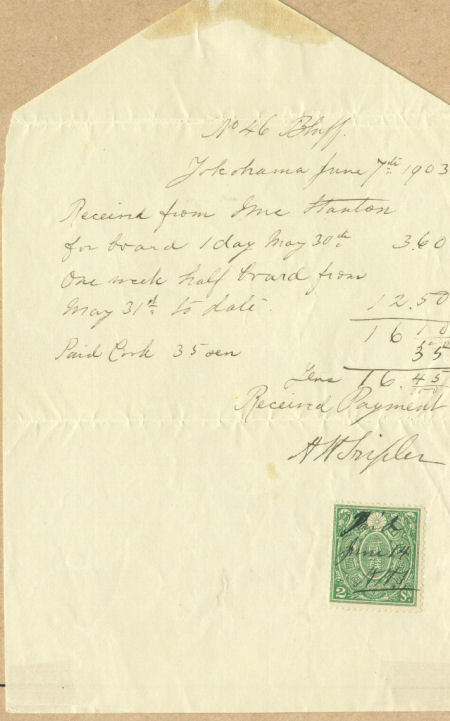 No 46 Bluff.
Yokohama June 7th 1903
Received from Mme Stanton
for board 1 day May 30th 3.60
One week half board from
May 31st to date. 12.50
16 10
Paid Cook 35 sen 35
Yens 16.45
Received Payment
A W
Paid
June 14
2 Sn